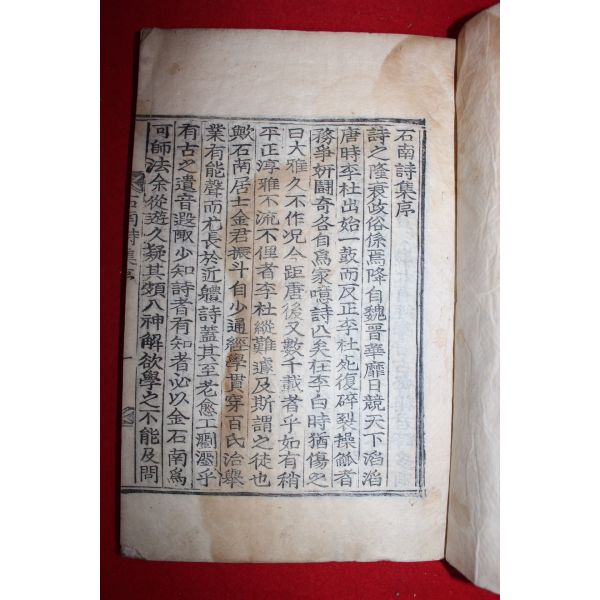 石南詩集序
詩之隆衰政俗係焉降自魏晉華靡日競天下滔滔
唐時李杜出始一鼓而反正李杜死復碎裂操觚者
務爭姸鬪奇各自爲家噫詩亡矣在李白時猶傷之
曰大雅久不作况今距唐後又數千載者乎如有稍
平正淳雅不流不俚者李杜縱難遽及斯謂之徒也
歟石南居士金君振斗自少通經學貫穿百氏治擧
業有能聲而尤長於近軆詩蓋其至老愈工瀏瀏乎
有古之遺音遐陬少知詩者有知者必以金石南爲
可師法余從遊久疑其類入神解欲學之不能及問
石南詩集序
一